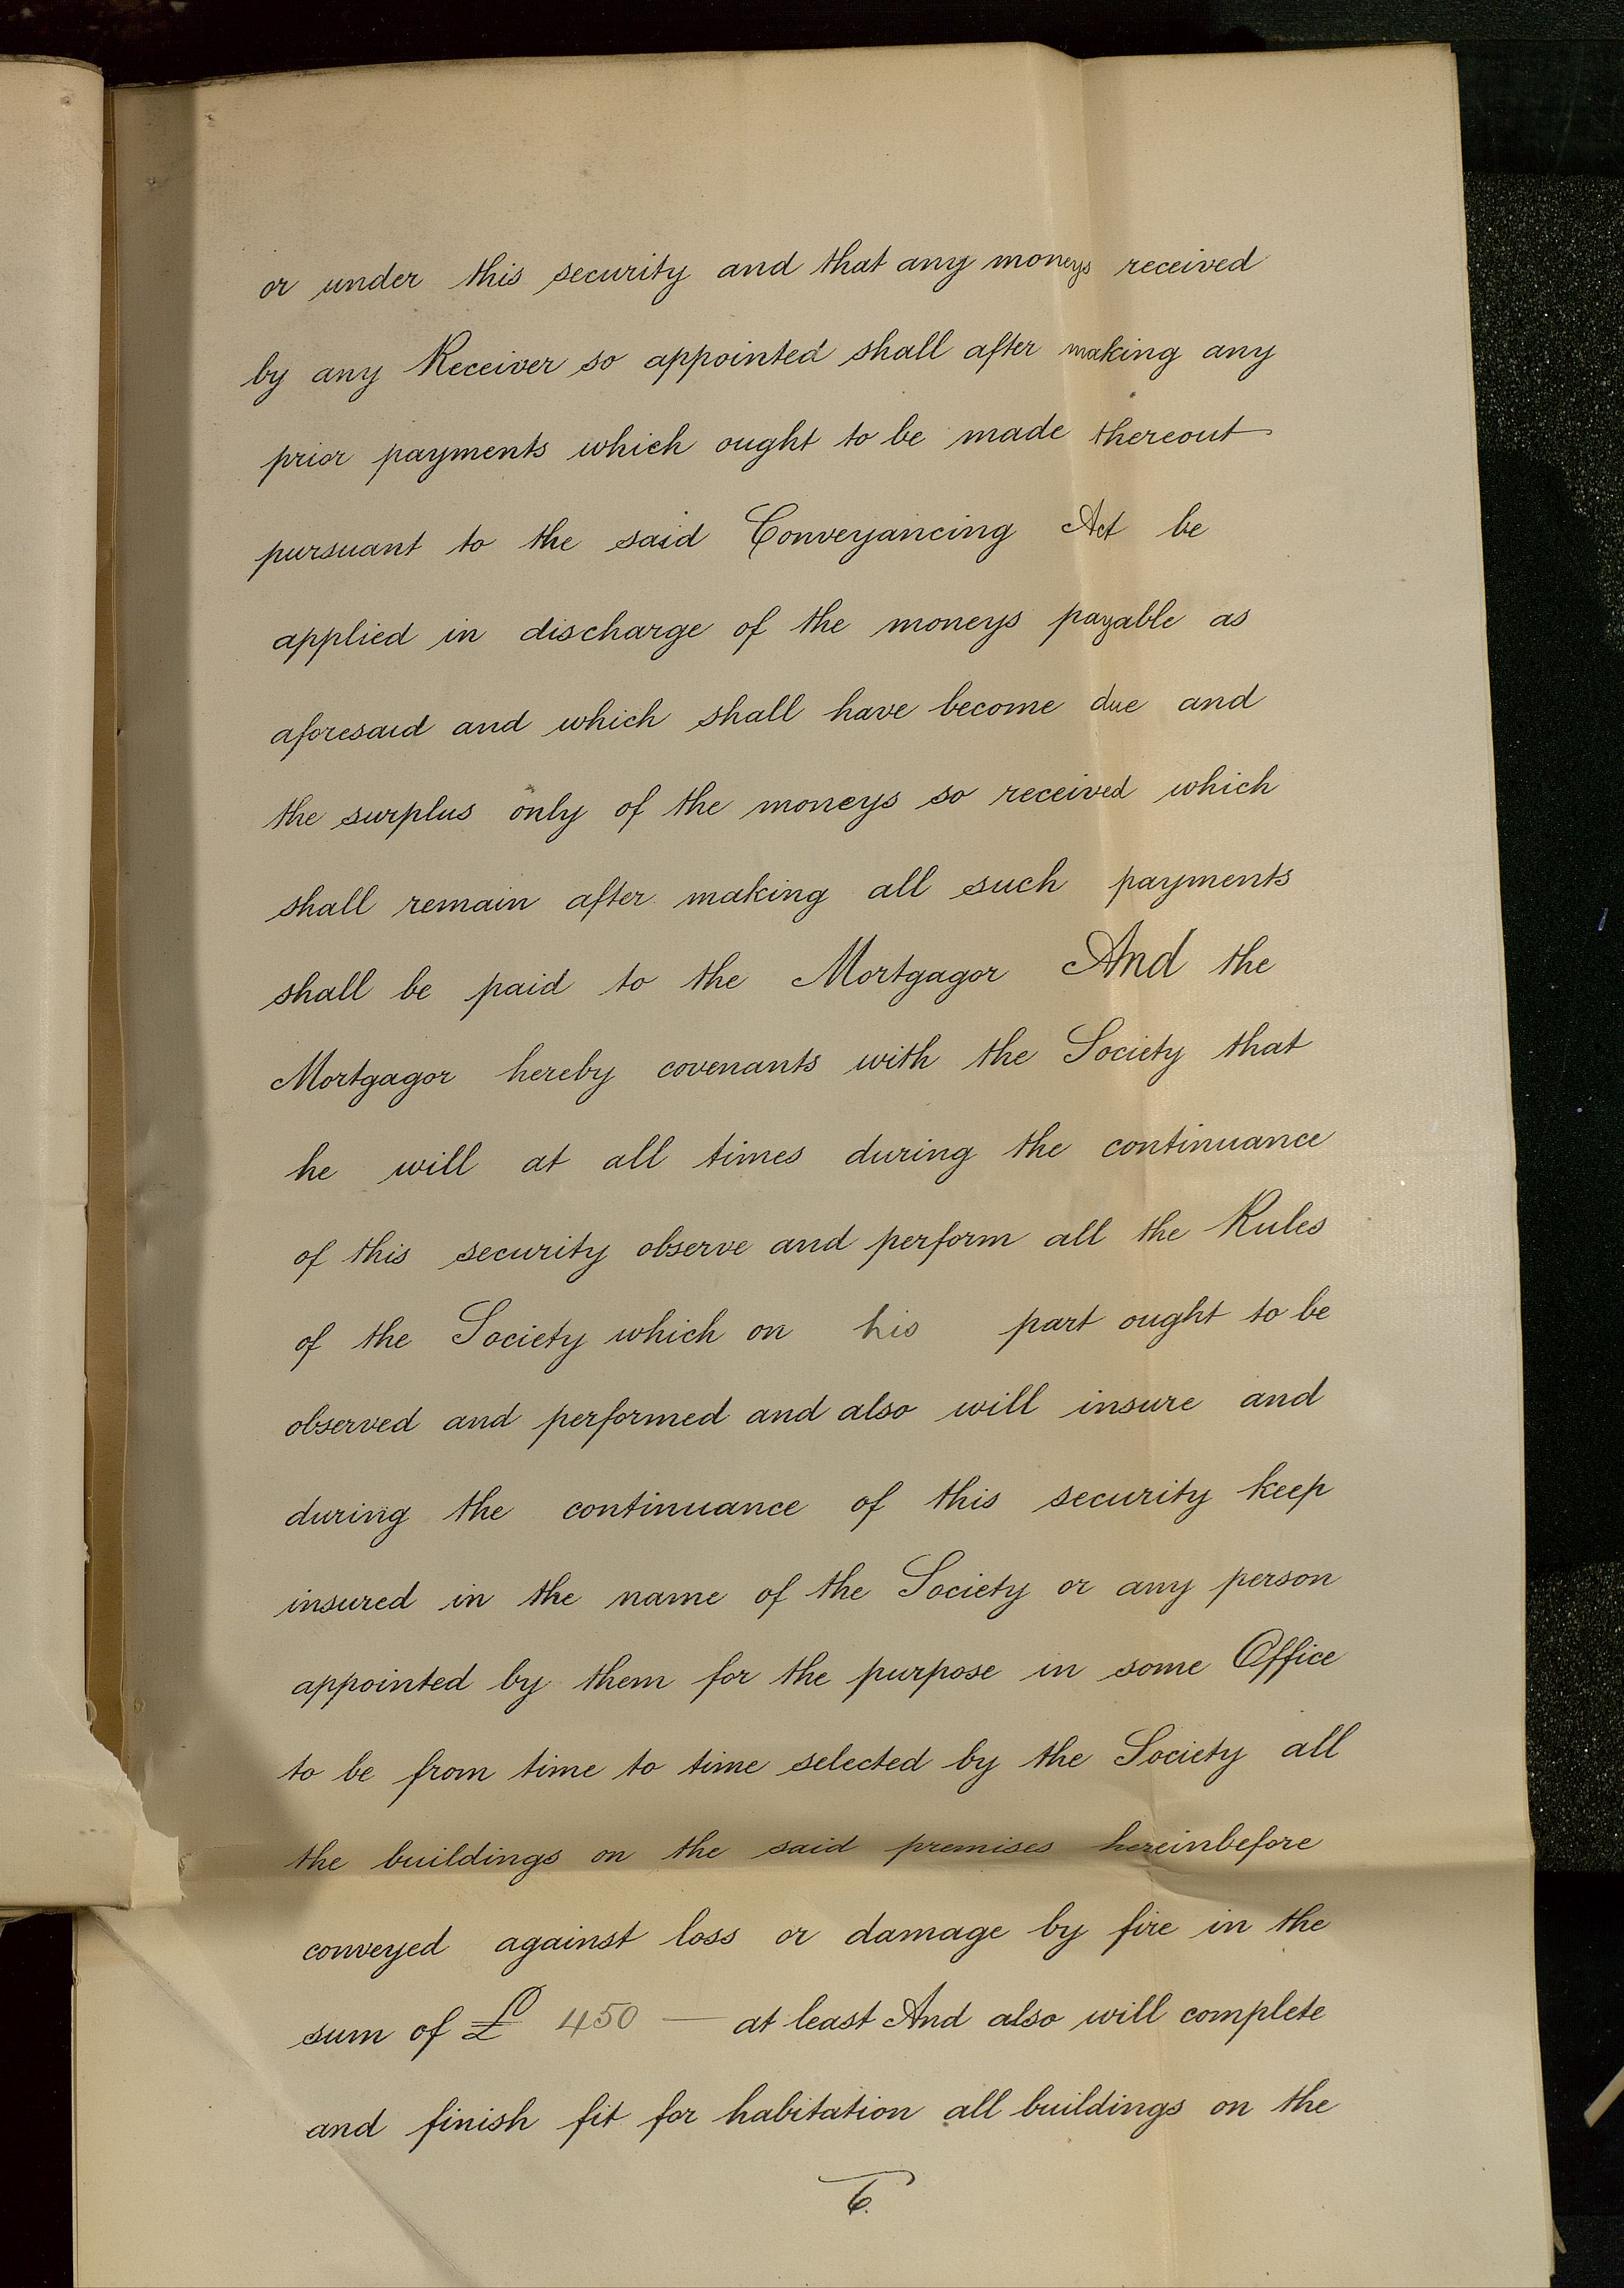 or under this security and that any moneys received
by any Receiver so appointed shall after making any
prior payments which ought to be made thereout
pursuant to the said Conveyancing Act be
applied in discharge of the moneys payable as
aforesaid and which shall have become due and
the surplus only of the moneys so received which
shall remain after making all such payments
shall be paid to the Mortgagor And the
Mortgagor hereby covenants with the Society that
he will at all times during the continuance
of this security observe and perform all the Rules
of the Society which on his part ought to be
observed and performed and also will insure and
during the continuance of this security keep
insured in the name of the Society or any person
appointed by them for the purpose in some Office
to be from time to time selected by the Society all
the buildings on the said premises hereinbefore
conveyed against loss or damage by fire in the
sum of £ 450 — at least And also will complete
and finish fit for habitation all buildings on the
6.